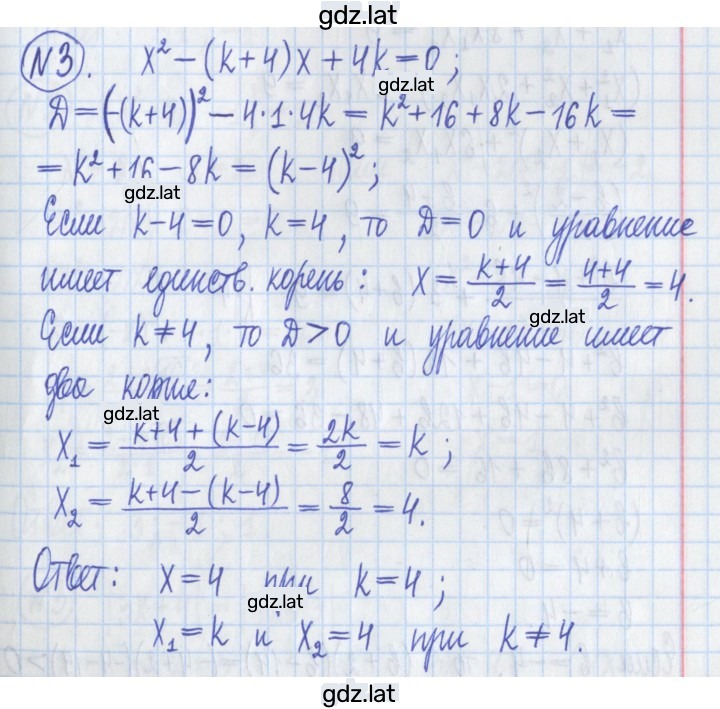 gdz.lat
№3. x² − (k+4)x + 4k = 0;
gdz.lat
Д = (−(k+4))² − 4·1·4k = k² + 16 + 8k − 16k =
= k² + 16 − 8k = (k−4)²;
gdz.lat
Если k−4=0, k=4, то Д=0 и уравнение
имеет единств. корень: x = (k+4)/2 = (4+4)/2 = 4.
gdz.lat
Если k≠4, то Д>0 и уравнение имеет
два
gdz.lat
x₁ = (k+4+(k−4))/2 = 2k/2 = k;
x₂ = (k+4−(k−4))/2 = 8/2 = 4.
Ответ: x=4 при k=4;
gdz.lat
x₁=k и x₂=4 при k≠4.
gdz.lat